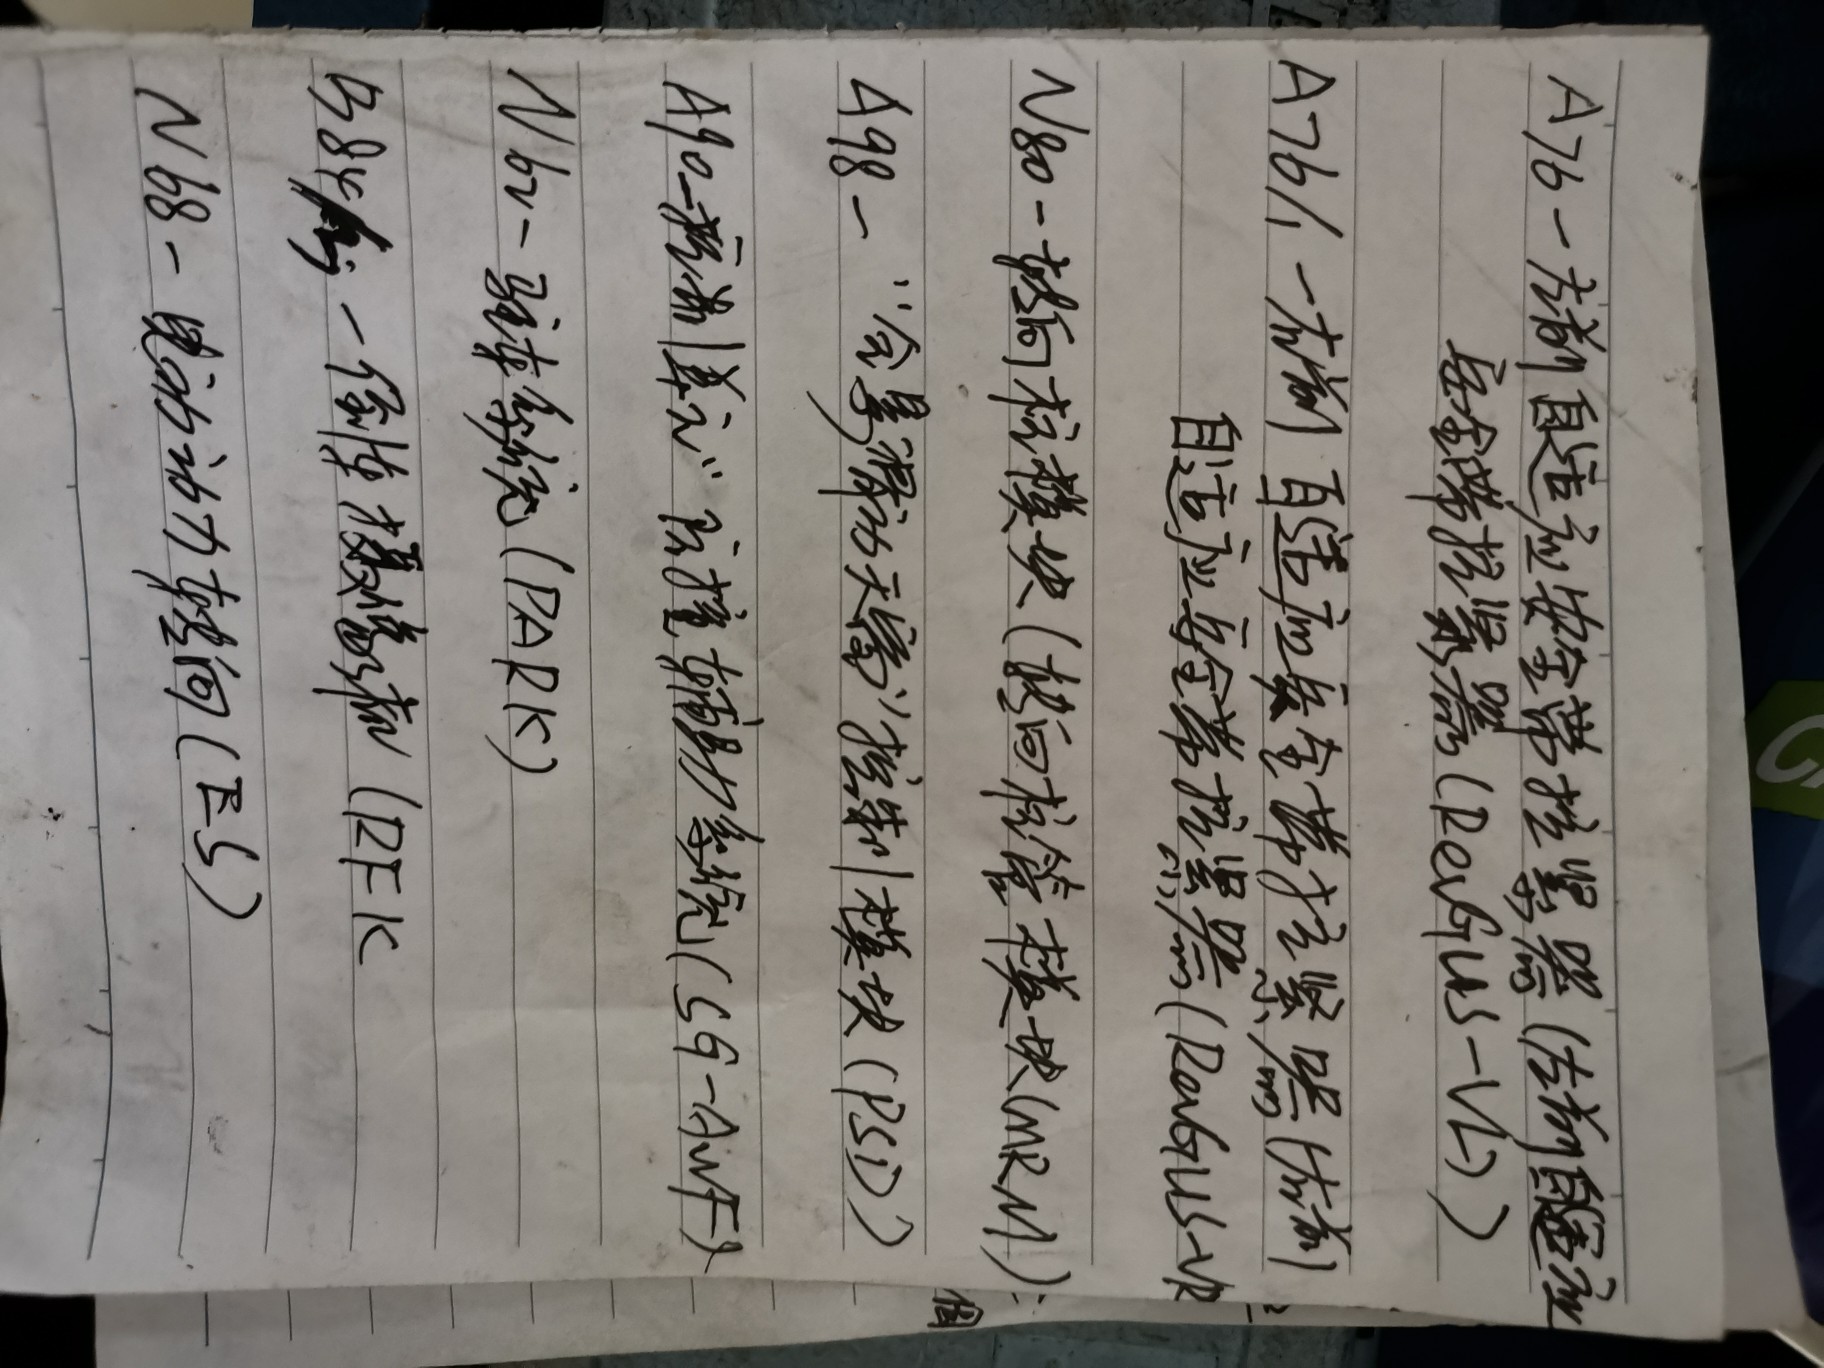 A76-左前自适应安全带拉紧器(左前自适应
安全带拉紧器(RevGus-VL)
A76/1-右前自适应安全带拉紧器(右前
自适应安全带拉紧器(RevGus-VR
N80-转向柱模块(转向柱管模块(MRM)
A98-"全景滑动天窗"控制模块(PSD)
A90-碰撞 辅助系统(SG-AWF)
N62-驻车系统(PARK)
B84/ -倒车摄像机(RFK
N68-电动动力转向(ES)